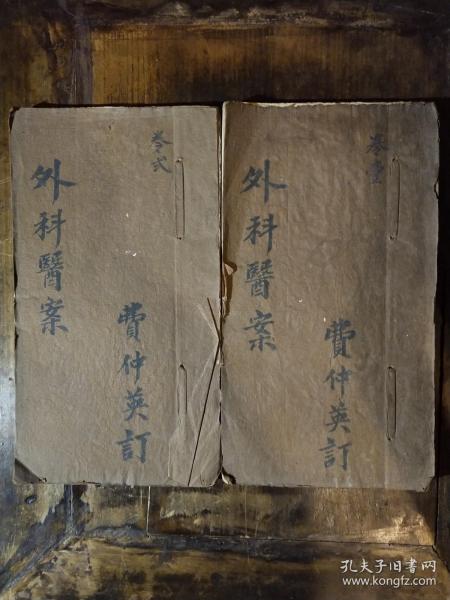 卷壹
外科醫案
費仲英訂
卷弍
外科醫案
費仲英訂
孔夫子旧书网
www.kongfz.com